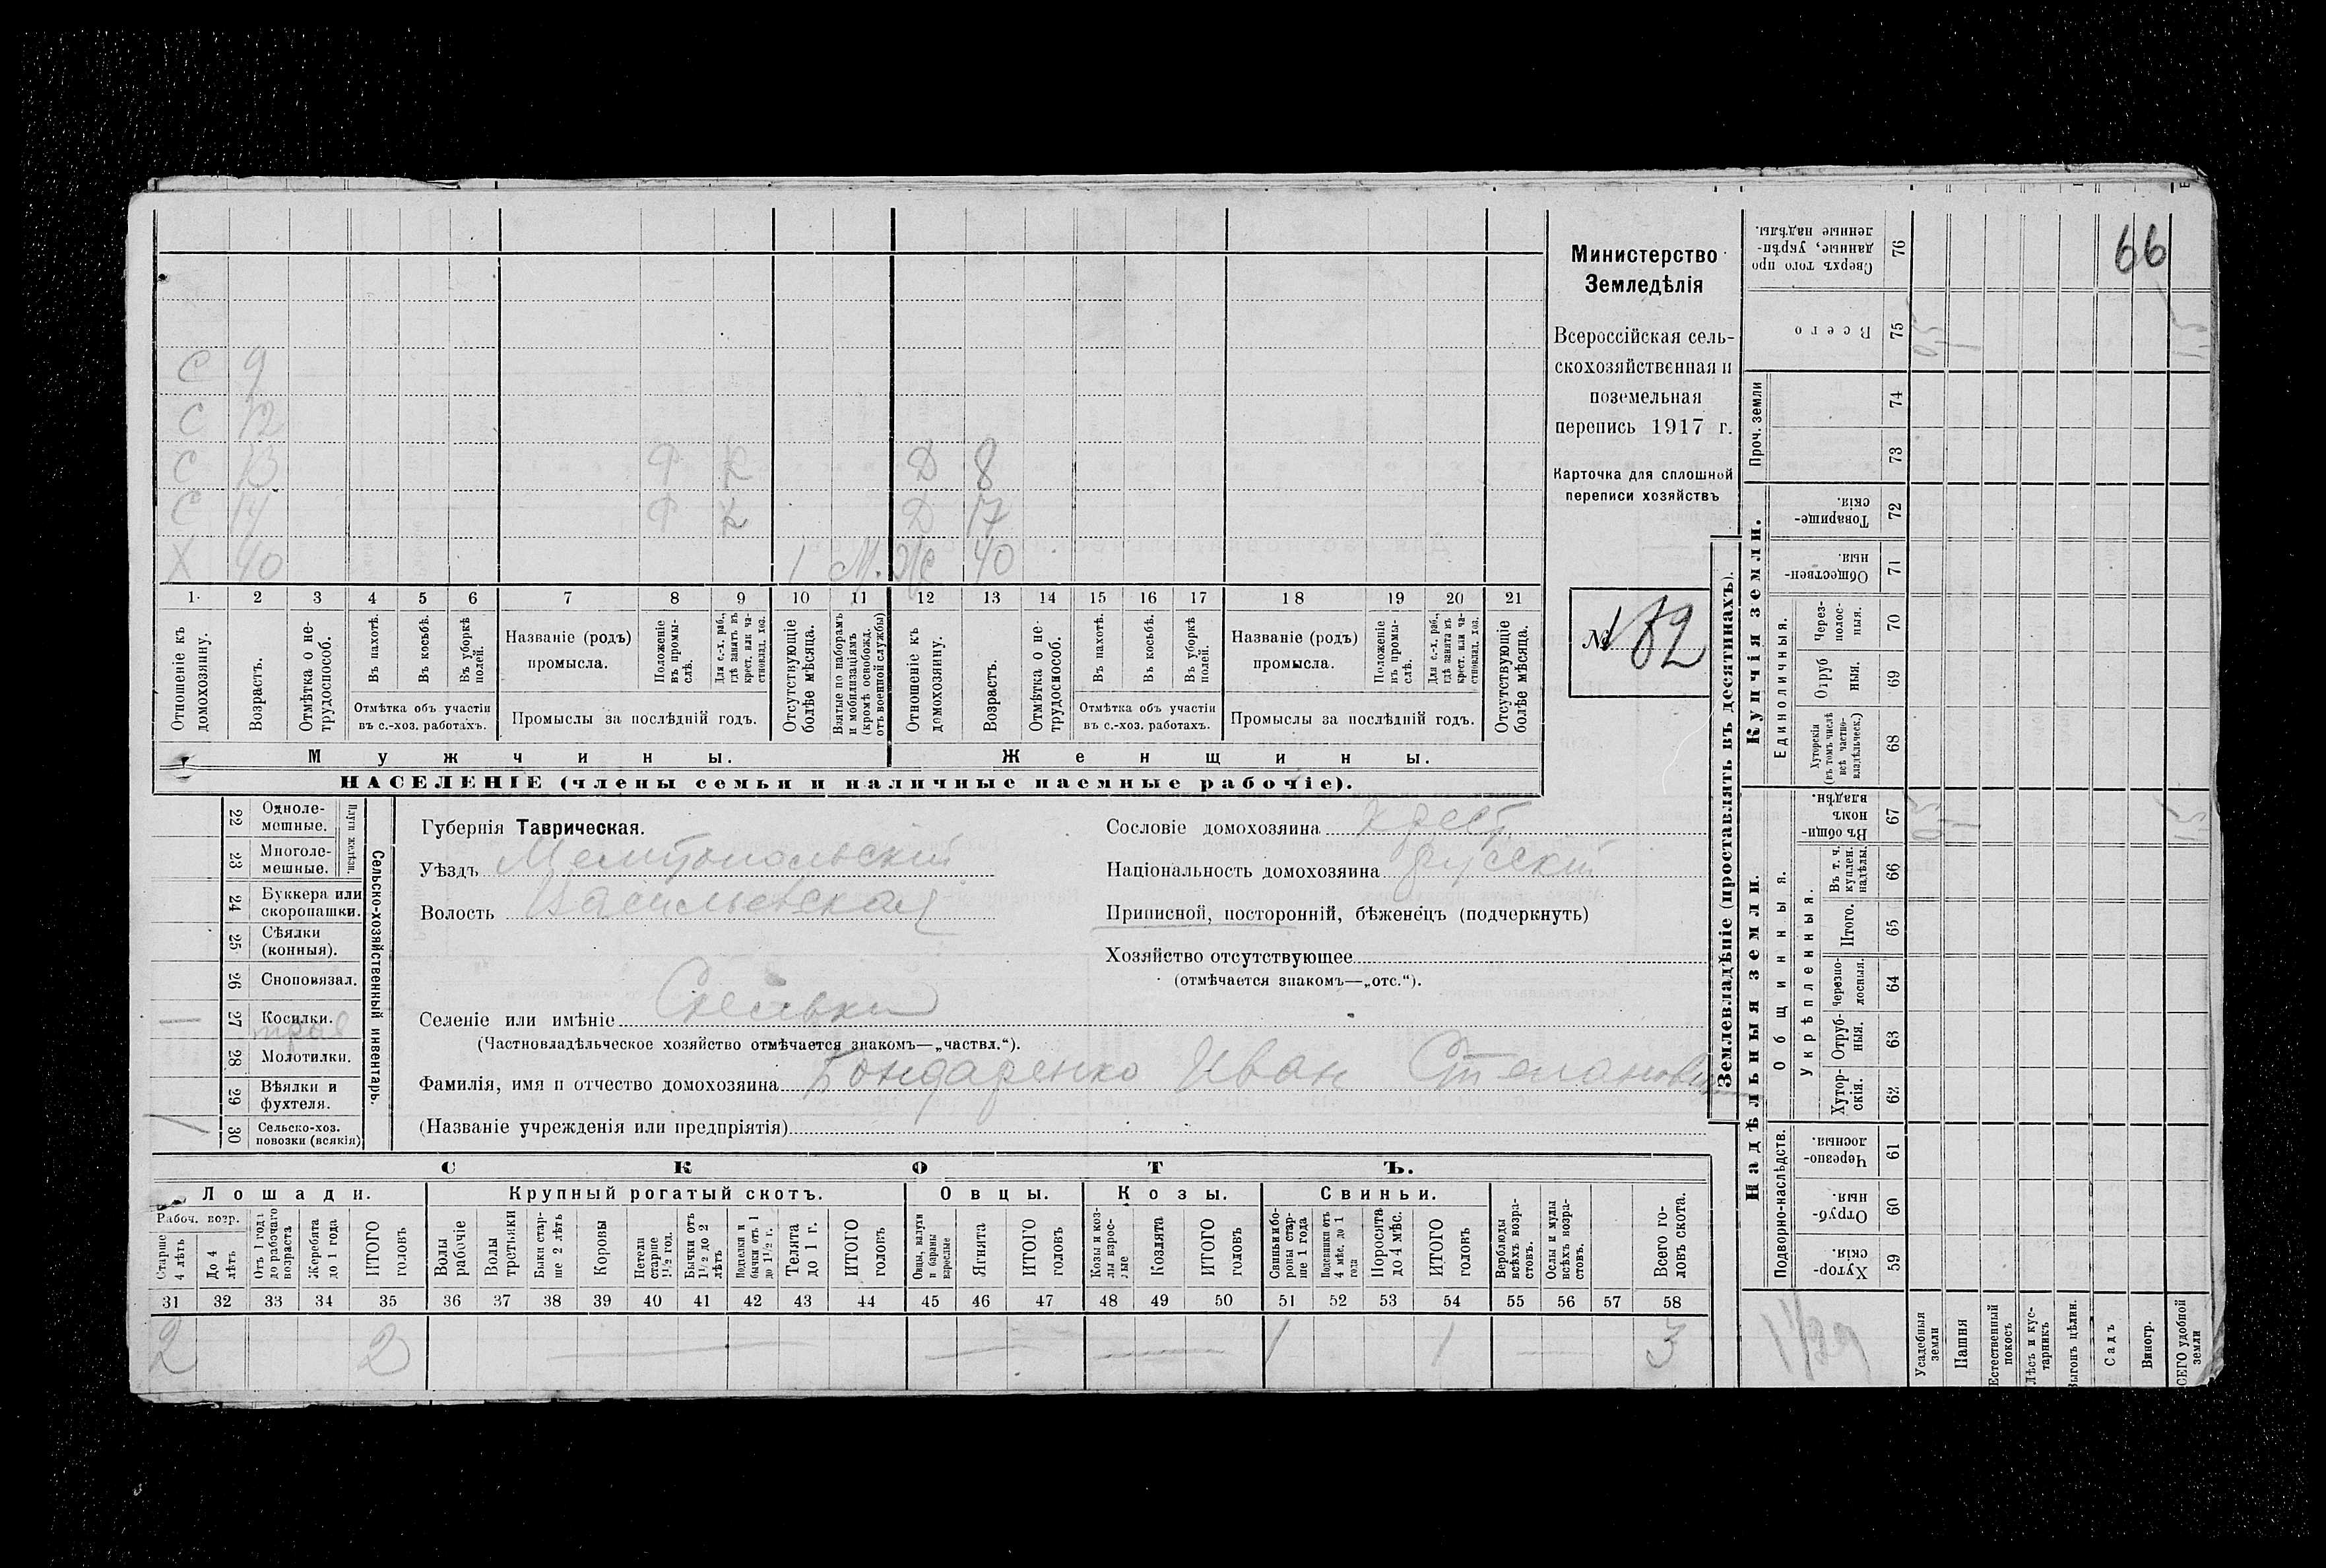 66
С 9
С 12
С 13 Ф К Д 8
С 14 Ф К Д 17
Х 40 1 М. Ж 40
1. 2 3 4 5 6 7 8 9 10 11 12 13 14 15 16 17 18 19 20 21
Отношеніе къ домохозяину.
Возрастъ.
Отмѣтка о не-трудоспособ.
Въ пахотѣ.
Въ косьбѣ.
Въ уборкѣ полей.
Отмѣтка объ участіи
въ с.-хоз. работахъ.
Названіе (родъ)
промысла.
Положеніе въ промы-слѣ.
Для с.-х. раб., гдѣ занятъ въ крест. или ча-стновлад. хоз.
Промыслы за послѣдній годъ.
Отсутствующіе болѣе мѣсяца.
Взятые по наборамъ и мобилизаціямъ (кромѣ освобожд. отъ военной службы)
Отношеніе къ домохозяину.
Возрастъ.
Отмѣтка о не-трудоспособ.
Въ пахотѣ.
Въ косьбѣ.
Въ уборкѣ полей.
Отмѣтка объ участіи
въ с.-хоз. работахъ.
Названіе (родъ)
промысла.
Положеніе въ промы-слѣ.
Для с.-х. раб., гдѣ занята въ крест. или ча-стновлад. хоз.
Промыслы за послѣдній годъ.
Отсутствующіе болѣе мѣсяца.
Мужчины.
Женщины.
НАСЕЛЕНІЕ (члены семьи и наличные наемные рабочіе).
Министерство
Земледѣлія
Всероссійская сель-
скохозяйственная и
поземельная
перепись 1917 г.
Карточка для сплошной
переписи хозяйствъ
№ 182
Сельско-хозяйственный инвентарь.
Плуги желѣзн.
22 Одноле-
мешные.
23 Многоле-
мешные.
24 Буккера или
скоропашки.
25 Сѣялки
(конныя).
26 Сноповязал.
27 Косилки.
28 Молотилки.
29 Вѣялки и
фухтеля.
1 30 Сельско-хоз.
повозки (всякія)
Губернія Таврическая.
Уѣздъ Мелитопольскій
Волость Васильевская
Селеніе или имѣніе
(Частновладѣльческое хозяйство отмѣчается знакомъ—„частвл.“).
Фамилія, имя и отчество домохозяина Бондаренко Иван Степанович
(Названіе учрежденія или предпріятія)
Сословіе домохозяина крест.
Національность домохозяина русскій
Приписной, посторонній, бѣженецъ (подчеркнуть)
Хозяйство отсутствующее
(отмѣчается знакомъ—„отс.“).
СКОТЪ.
Лошади. Крупный рогатый скотъ. Овцы. Козы. Свиньи.
Рабоч. возр.
Старше 4 лѣтъ
До 4 лѣтъ
Отъ 1 года до рабочаго возраста
Жеребята до 1 года
ИТОГО головъ
Волы рабочіе
Волы третьяки
Быки стар-ше 2 лѣтъ
Коровы
Нетели старше 1½ год.
Бычки отъ 1½ до 2 лѣтъ
Подтелки и бычки отъ 1 до 1½ г.
Телята до 1 г.
ИТОГО головъ
Овцы, валухи и бараны взрослые
Ягнята
ИТОГО головъ
Козы и коз-лы взрос-лые
Козлята
ИТОГО головъ
Свиньи и бо-ровы стар-ше 1 года
Подсвинки отъ 4 мѣс. до 1 года
Поросята до 4 мѣс.
ИТОГО головъ
Верблюды всѣхъ возра-стовъ.
Ослы и мулы всѣхъ возра-стовъ.
Всего го-ловъ скота.
31 32 33 34 35 36 37 38 39 40 41 42 43 44 45 46 47 48 49 50 51 52 53 54 55 56 57 58
2 2 1 1 3
Землевладѣніе (проставлять въ десятинахъ).
Надѣльныя земли.
Купчія земли.
Проч. земли
Подворно-наслѣдств.
Общинныя.
Укрѣпленныя.
Единоличныя.
Сверхъ того про
данные, укрѣп-
ленные надѣлы. 76
Всего 75
74
73
Товарище-
скія. 72
Обществен-
ныя. 71
Через-полос-ныя. 70
Отруб ныя. 69
Хуторскія (въ томъ числѣ всѣ частно-владѣльческ.) 68
Въ общи-
номъ
владѣн. 67
Въ т. ч. куплен. надѣлы. 66
Итого. 65
Черезпо-лосныя. 64
Отруб-ныя. 63
Хутор-скія. 62
Черезпо-
лосныя. 61
Отруб-
ныя. 60
Хутор-
скія. 59
Усадебныя земли
Пашня
Естественный покосъ
Лѣсъ и кус-тарникъ
Выгонъ цѣлин.
Садъ
Виногр.
ВСЕГО удобной земли